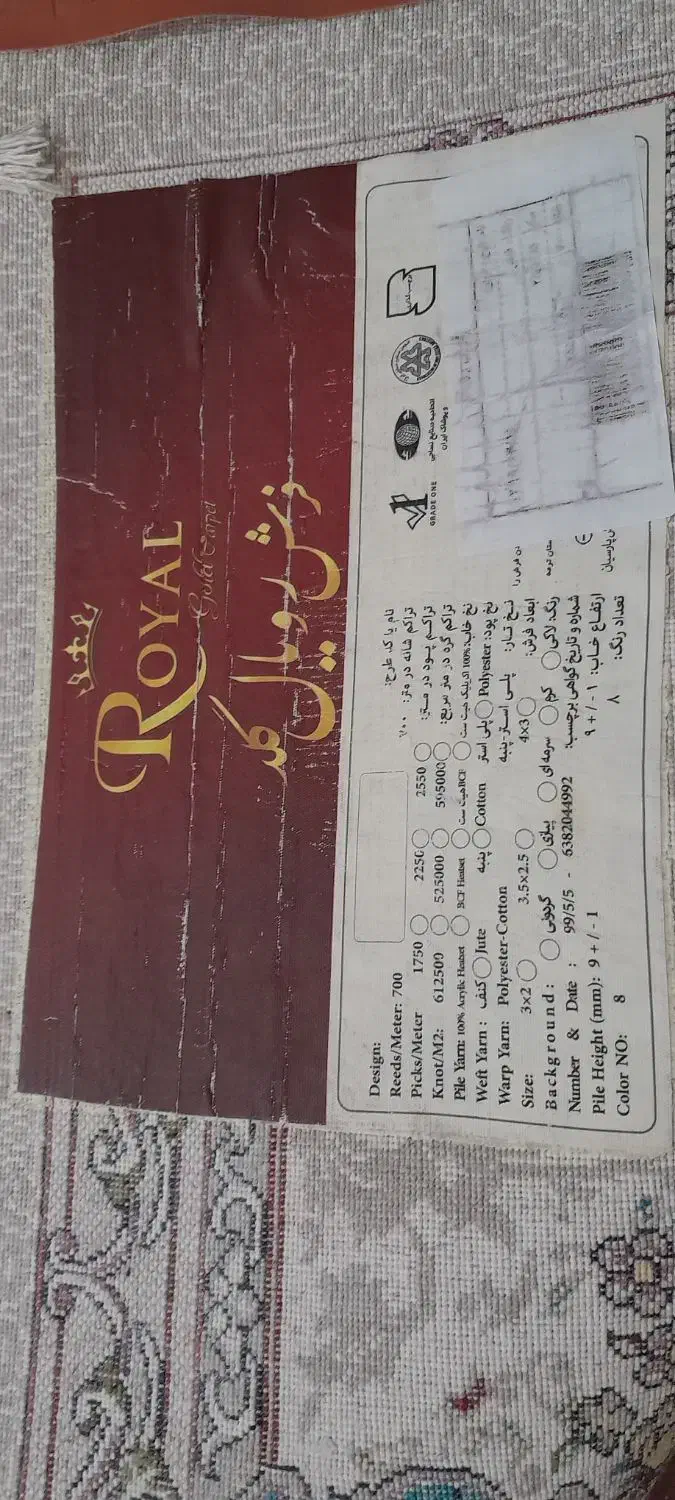 ROYAL
Gold Carpet
فرش رویال گلد
GRADE ONE
اتحادیه صنایع نساجی
و پوشاک ایران
Design: نام یا کد طرح:
Reeds/Meter: 700 ۷۰۰ تراکم شانه در متر:
Picks/Meter 1750 2250 2550 تراکم پود در متر:
Knot/M2: 612500 525000 595000 تراکم گره در متر مربع:
Pile Yarn: 100% Acrylic Heatset BCF Heatset هیت ست BCF نخ خاب: 100% اکریلیک هیت ست
Weft Yarn: کنف Jute پنبه Cotton پلی استر Polyester نخ پود:
Warp Yarn: Polyester-Cotton پلی استر-پنبه نخ تار:
Size: 3x2 3.5x2.5 4x3 ابعاد فرش:
Background: گردویی پیازی سرمه ای کرم لاکی رنگ:
Number & Date : 99/5/5 - 6382044992 شماره و تاریخ گواهی برچسب:
Pile Height (mm): 9 +/-1 ۹ +/-۱ ارتفاع خاب:
Color NO: 8 ۸ تعداد رنگ: